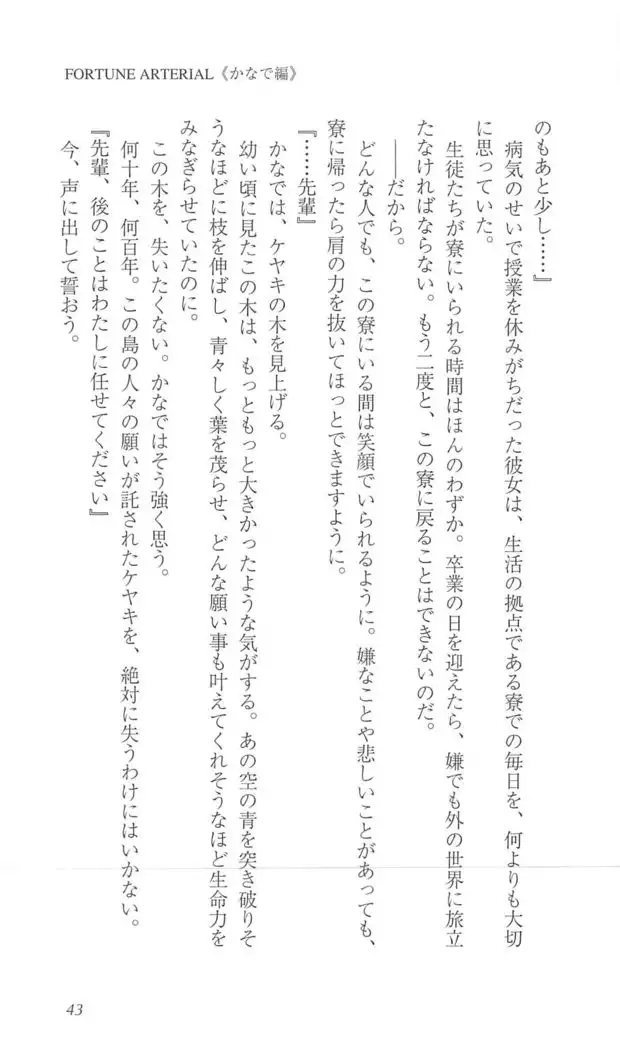 FORTUNE ARTERIAL《かなで編》
のもあと少し……』
　病気のせいで授業を休みがちだった彼女は、生活の拠点である寮での毎日を、何よりも大切
に思っていた。
　生徒たちが寮にいられる時間はほんのわずか。卒業の日を迎えたら、嫌でも外の世界に旅立
たなければならない。もう二度と、この寮に戻ることはできないのだ。
　――だから。
　どんな人でも、この寮にいる間は笑顔でいられるように。嫌なことや悲しいことがあっても、
寮に帰ったら肩の力を抜いてほっとできますように。
『……先輩』
　かなでは、ケヤキの木を見上げる。
　幼い頃に見たこの木は、もっともっと大きかったような気がする。あの空の青を突き破りそ
うなほどに枝を伸ばし、青々しく葉を茂らせ、どんな願い事も叶えてくれそうなほど生命力を
みなぎらせていたのに。
　この木を、失いたくない。かなではそう強く思う。
　何十年、何百年。この島の人々の願いが託されたケヤキを、絶対に失うわけにはいかない。
『先輩、後のことはわたしに任せてください』
　今、声に出して誓おう。
43